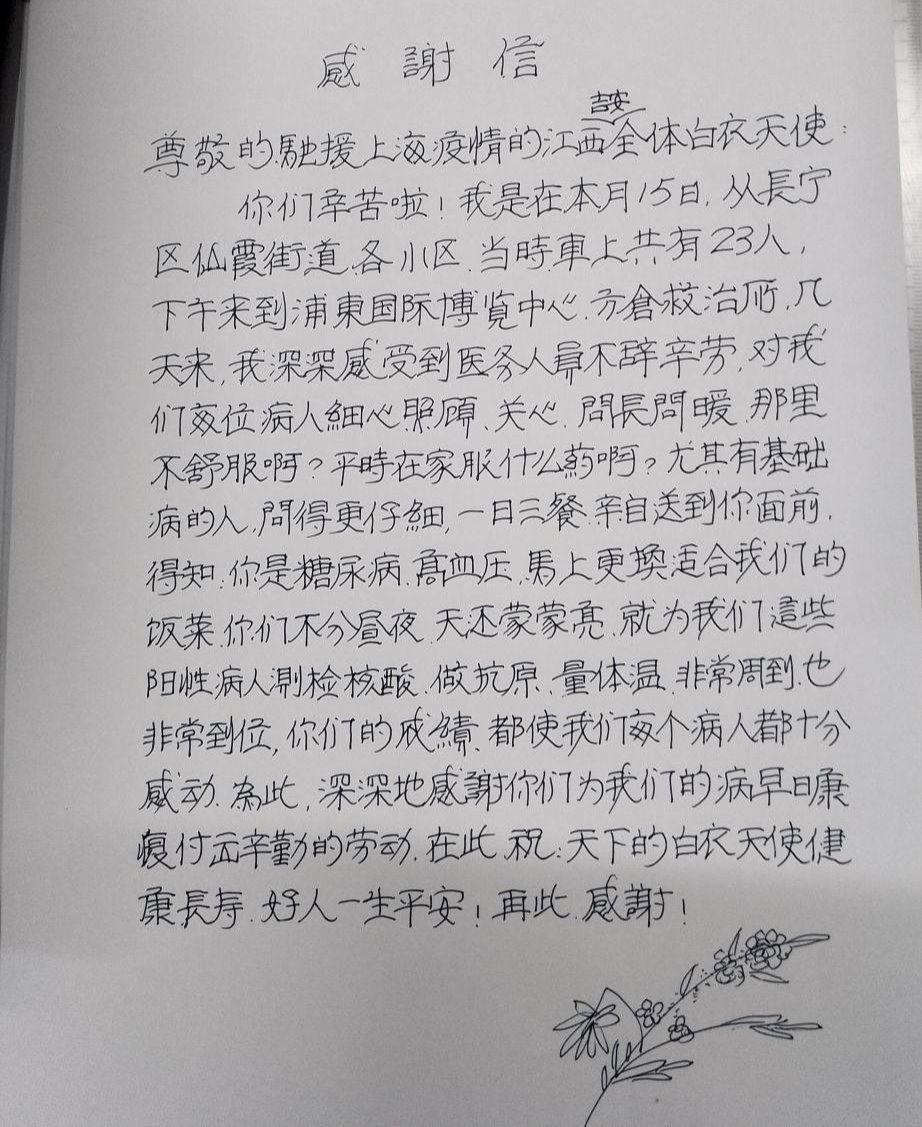 感謝信
吉安
尊敬的馳援上海疫情的江西全体白衣天使:
你们辛苦啦!我是在本月15日,从長宁
区仙霞街道、各小区、当時車上共有23人,
下午来到浦東国际博览中心、方倉救治所,几
天来,我深深感受到医务人員不辞辛劳,对我
们每位病人細心照顾、关心、問長問暖、那里
不舒服啊?平時在家服什么药啊?尤其有基础
病的人,問得更仔細,一日三餐、亲自送到你面前,
得知、你是糖尿病、高血压、馬上更換适合我们的
饭菜、你们不分昼夜、天还蒙蒙亮、就为我们這些
阳性病人測检核酸、做抗原、量体温、非常周到、也
非常到位,你们的成績、都使我们每个病人都十分
感动、為此,深深地感謝你们为我们的病早日康
復付出辛勤的劳动、在此、祝:天下的白衣天使健
康長寿、好人一生平安!再此、感謝!